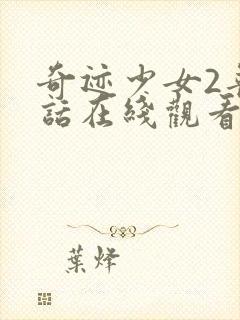 奇迹少女2普
話在綫觀看
葉烽